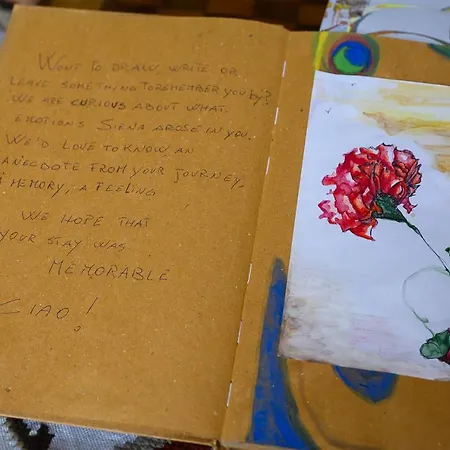 WANT TO DRAW, WRITE OR
LEAVE SOMETHING TO REMEMBER YOU BY?
WE ARE CURIOUS ABOUT WHAT
EMOTIONS SIENA AROSE IN YOU.
WE'D LOVE TO KNOW AN
ANECDOTE FROM YOUR JOURNEY,
A MEMORY, A FEELING!
WE HOPE THAT
YOUR STAY WAS
MEMORABLE
CIAO!